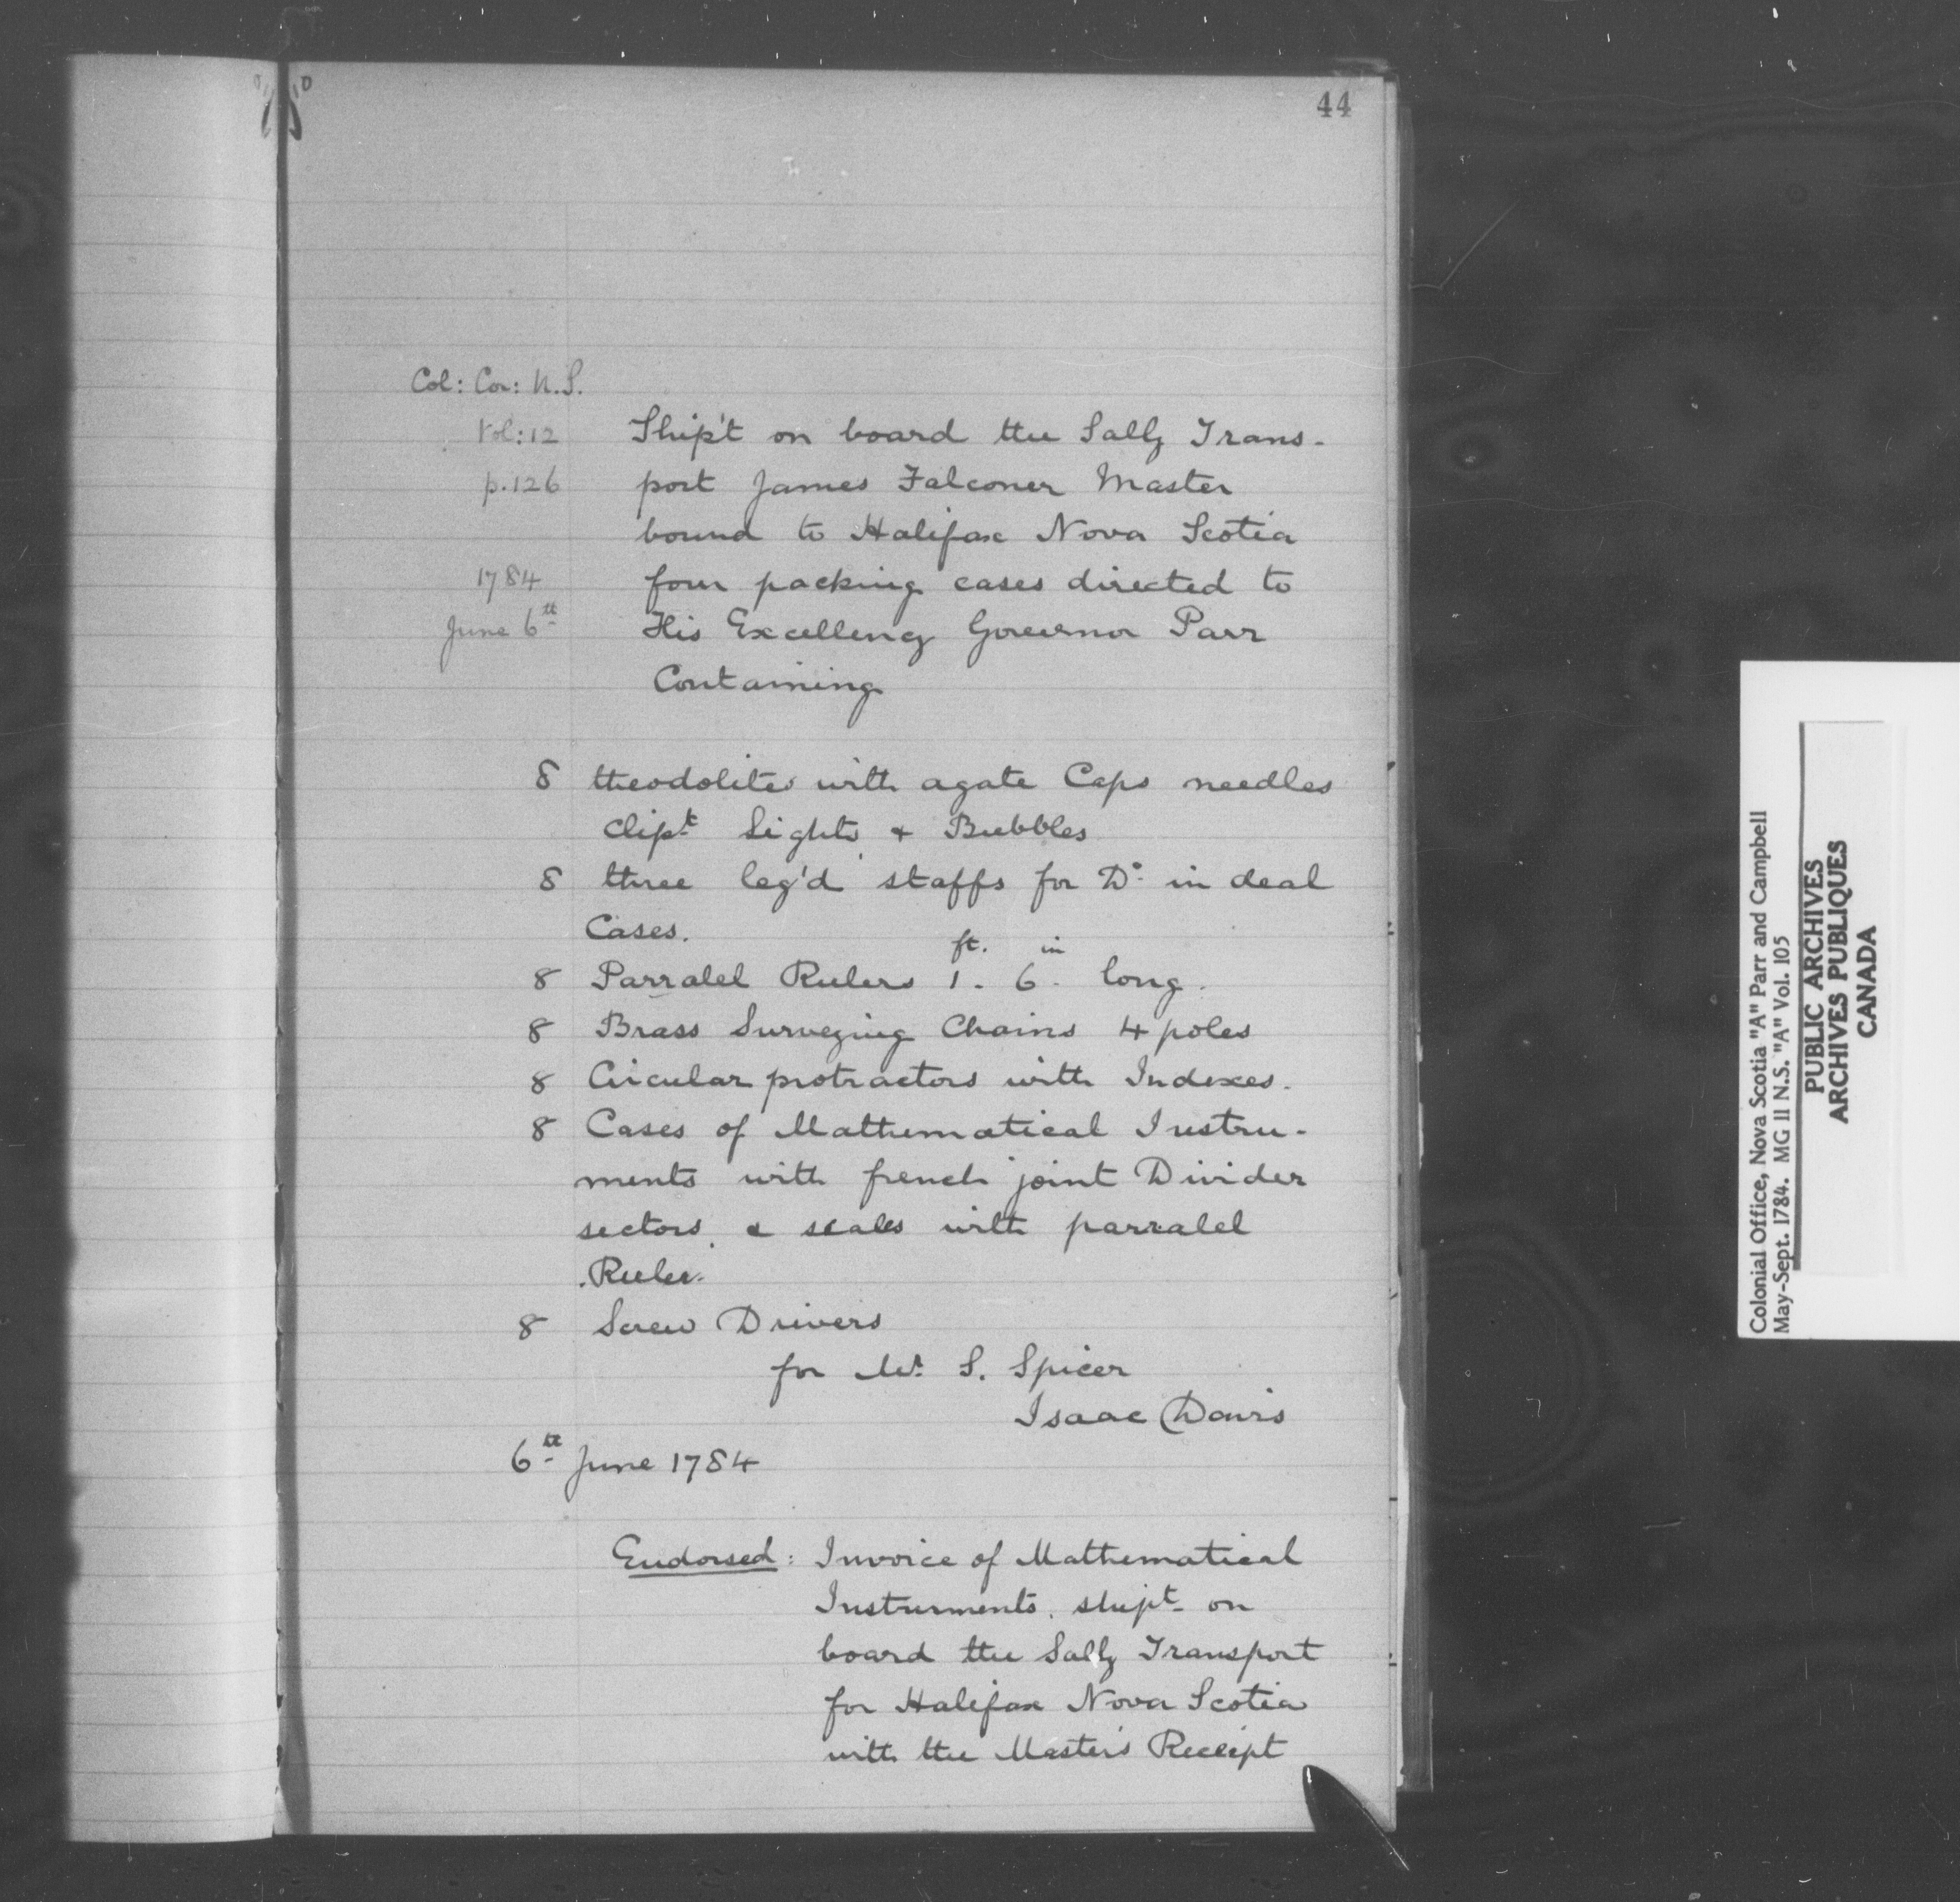 44
Col: Cor: N.S.
Vol: 12
p. 126
1784
June 6th
Ship't on board the Sally Trans-
port James Falconer Master
bound to Halifax Nova Scotia
four packing cases directed to
His Excellency Governor Parr
Containing
8 theodolites with agate Caps needles
clipt Sights & Bubbles
8 three leg'd staffs for Do. in deal
Cases.
ft. in
8 Parralel Rulers 1. 6. long.
8 Brass Surveying Chains 4 poles
8 Circular protractors with Indexes.
8 Cases of Mathematical Instru-
ments with french joint Divider
sectors, & scales with parralel
Ruler.
8 Screw Drivers
for Mr. S. Spicer
Isaac Davis
6th June 1784
Endorsed: Invoice of Mathematical
Instruments. shipt on
board the Sally Transport
for Halifax Nova Scotia
with the Master's Receipt
Colonial Office, Nova Scotia "A" Parr and Campbell
May-Sept. 1784. MG 11 N.S. "A" Vol. 105
PUBLIC ARCHIVES
ARCHIVES PUBLIQUES
CANADA